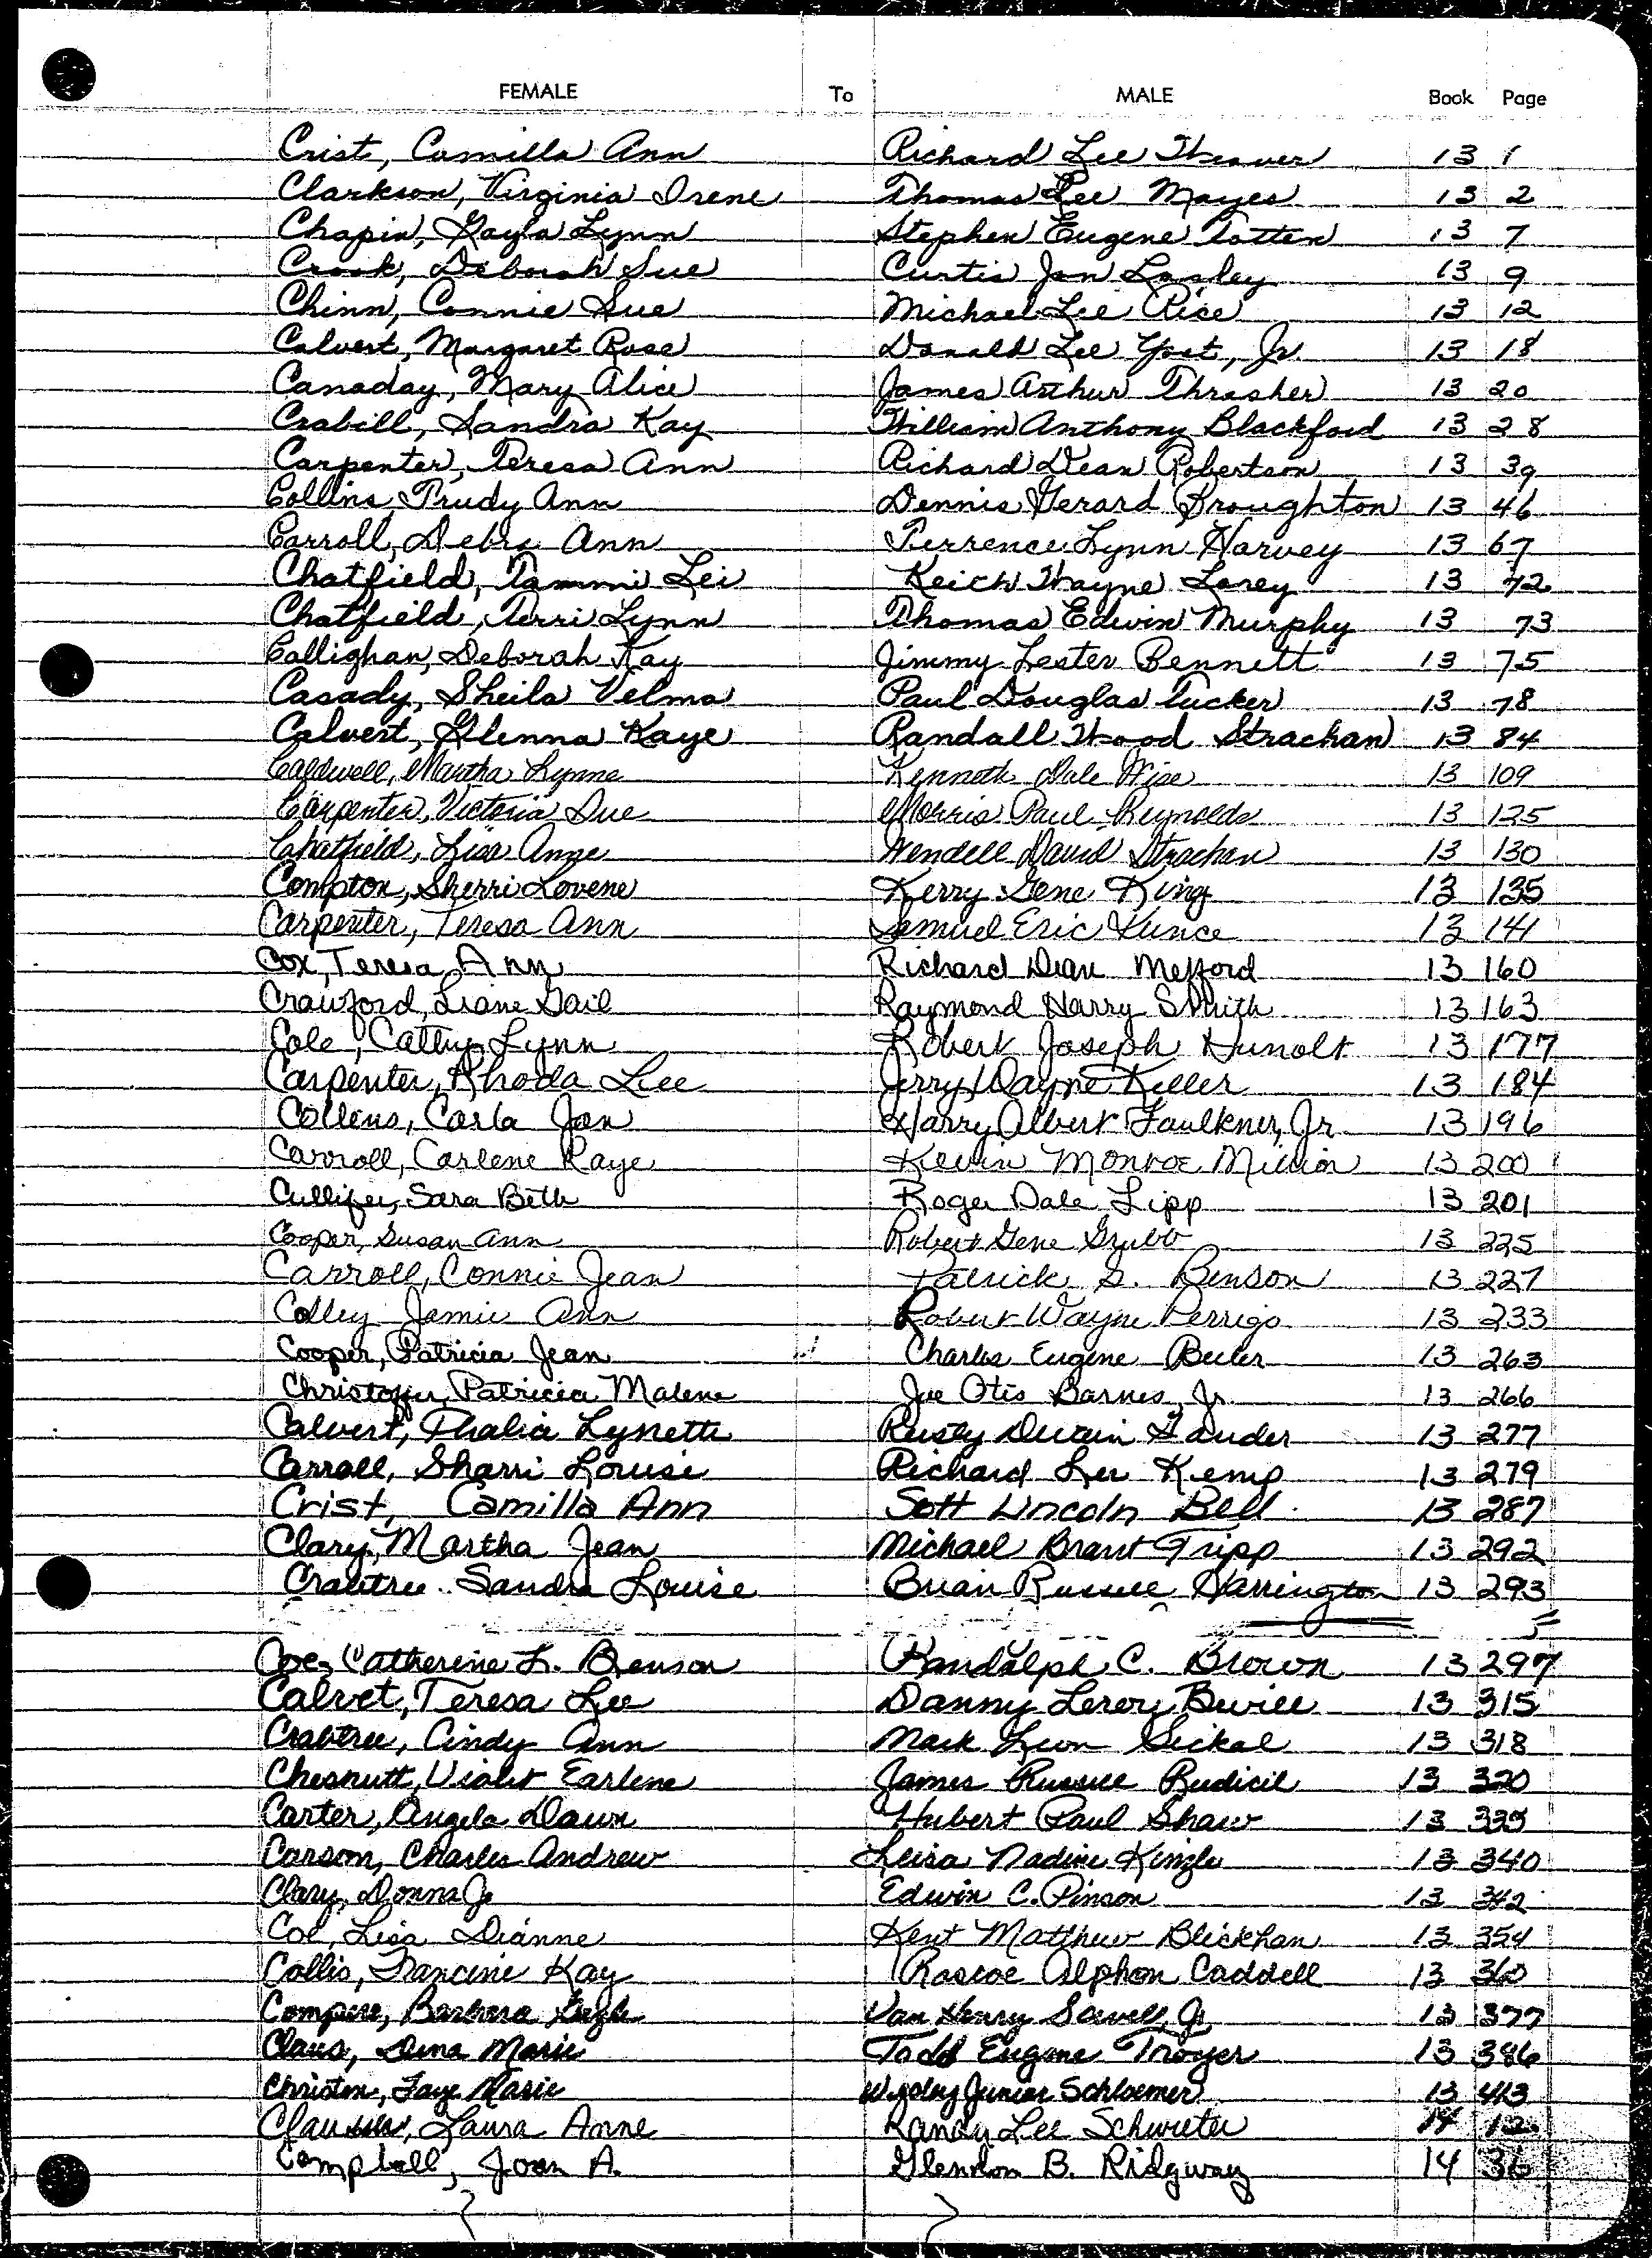 FEMALE To MALE Book Page
Crist, Camilla Ann Richard Lee Weaver 13 1
Clarkson, Virginia Irene Thomas Lee Mayes 13 2
Chapin, Gayla Lynn Stephen Eugene Totten 13 7
Crook, Deborah Sue Curtis Jon Lasley 13 9
Chinn, Connie Sue Michael Lee Rice 13 12
Calvert, Margaret Rose Donald Lee Yost, Jr. 13 18
Canaday, Mary Alice James Arthur Thrasher 13 20
Crabill, Sandra Kay William Anthony Blackford 13 28
Carpenter, Teresa Ann Richard Dean Robertson 13 39
Collins, Trudy Ann Dennis Gerard Broughton 13 46
Carroll, Debra Ann Terrence Lynn Harvey 13 67
Chatfield, Tammi Lei Keith Wayne Lorey 13 72
Chatfield, Terri Lynn Thomas Edwin Murphy 13 73
Callighan, Deborah Kay Jimmy Lester Bennett 13 75
Casady, Sheila Velma Paul Douglas Tucker 13 78
Calvert, Glenna Kaye Randall Wood Strachan 13 84
Caldwell, Martha Lynne Kenneth Dale Wise 13 109
Carpenter, Victoria Sue Morris Paul Reynolds 13 125
Chatfield, Lisa Anne Wendell David Strachan 13 130
Compton, Sherri Lovene Kerry Gene King 13 135
Carpenter, Teresa Ann Samuel Eric Kunce 13 141
Cox, Teresa Ann Richard Dean Mefford 13 160
Crawford, Diane Gail Raymond Harry Smith 13 163
Cole, Cathy Lynn Robert Joseph Hunolt 13 177
Carpenter, Rhoda Lee Jerry Wayne Keller 13 184
Collens, Carla Jan Harry Albert Faulkner, Jr. 13 196
Carroll, Carlene Raye Kevin Monroe Million 13 200
Cullifer, Sara Beth Roger Dale Lipp 13 201
Cooper, Susan Ann Robert Gene Grubb 13 225
Carroll, Connie Jean Patrick S. Benson 13 227
Colley Jamie Ann Robert Wayne Perrigo 13 233
Cooper, Patricia Jean Charles Eugene Beeler 13 263
Christoffer, Patricia Malene Joe Otis Barnes, Jr. 13 266
Calvert, Thalia Lynette Rusty Durain Gander 13 277
Carroll, Sharri Louise Richard Lee Kemp 13 279
Crist, Camilla Ann Scott Lincoln Bell 13 287
Clary, Martha Jean Michael Brant Tripp 13 292
Crabtree Sandra Louise Brian Russell Harrington 13 293
Coe, Catherine L. Benson Randolph C. Brown 13 297
Calvet, Teresa Lee Danny Leroy Bevill 13 315
Crabtree, Cindy Ann Mark Leon Sickal 13 318
Chesnutt, Violet Earlene James Russell Rudicil 13 320
Carter, Angela Dawn Hubert Paul Shaw 13
Carson, Charles Andrew Leisa Nadine Kinzle 13 340
Clary, Donna Jo Edwin C. Pinson 13 342
Coe, Lisa Dianne Kent Matthew Blickhan 13 354
Collis, Francine Kay Roscoe Alphon Caddell 13 360
Compere, Barbara Gayle Van Henry Sewell, Jr. 13 377
Claus, Dena Marie Todd Eugene Troyer 13 386
Christen, Faye Marie Wesley Junior Schloemer 13 413
Laura Anne Randy Lee Schwieter 14 12
Campbell, Joan A. Glendon B. Ridgway 14 36